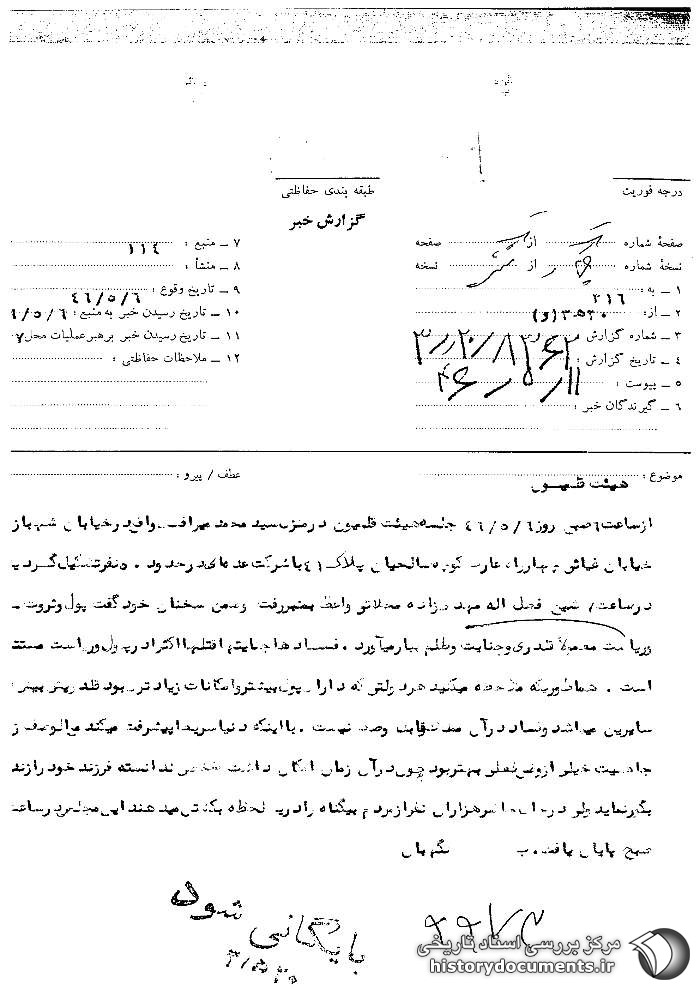 درجه فوریت
طبقه بندی حفاظتی
گزارش خبر
صفحهٔ شماره یک از یک صفحه
نسخهٔ شماره از نسخه
۱ ـ به : ۳۱۶
۲ ـ از : ۵۳۰
۳ ـ شماره گزارش :
۴ ـ تاریخ گزارش : ۴۶/۵/۱۱
۵ ـ پیوست :
۶ ـ گیرندگان خبر :
۷ ـ منبع : ۱۱۴
۸ ـ منشأ :
۹ ـ تاریخ وقوع : ۴۶/۵/۶
۱۰ ـ تاریخ رسیدن خبر به منبع : ۵/۶
۱۱ ـ تاریخ رسیدن خبر برهبر عملیات محل
۱۲ ـ ملاحظات حفاظتی :
موضوع : هیئت قلهیون
عطف / پیرو :
از ساعت ۶ صبح روز ۴۶/۵/۶ جلسه هیئت قلهیون در منزل سید محمد واقع در خیابان شهباز
خیابان غیاثی چهارراه عارف کوچه سالحیان پلاک ۴۱ با شرکت عده‌ای در حدود نفر تشکیل گردید
در ساعت شیخ فضل اله مهدیزاده محلاتی واعظ بمنبر رفت و ضمن سخنان خود گفت پول و ثروت
و ریاست معمولاً قلدری و جنایت و ظلم ببار میآورد . فسادها جنایتها قتلها اکثراً در پول و ریاست مستتر
است . همانطوریکه ملاحظه میکنید هر دولتی که دارای پول بیشتر و امکانات زیادتری بود ظلمش بیشتر از
سایرین میباشد و فساد در آن مملکت قابل وصف نیست . با اینکه دنیا سریعاً پیشرفت میکند مع‌الوصف زمان
جاهلیت خیلی از وضع فعلی بهتر بود چون در آن زمان امکان داشت شخصی ندانسته فرزند خود را زنده
بگور نماید ولی در حال حاضر هزاران نفر از مردم بیگناه را در یک لحظه بکشتن میدهند این مجلس در ساعت
صبح پایان یافت . ب نگهبان
بایگانی شود
مرکز بررسی اسناد تاریخی
historydocuments.ir